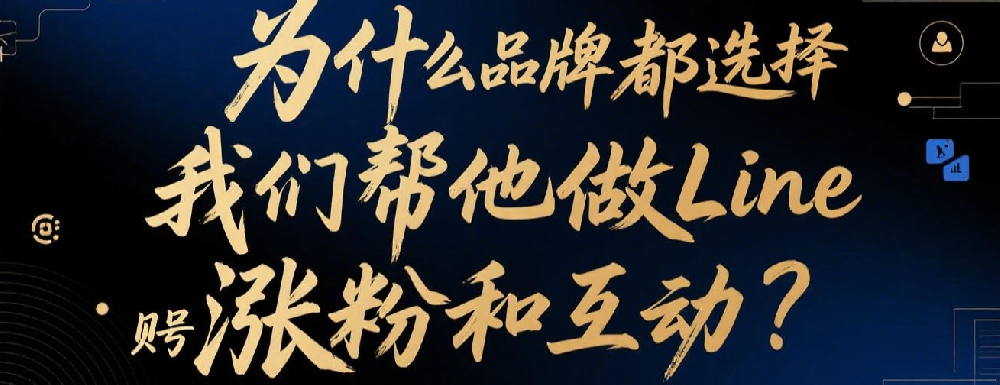 为什么品牌都选择
我们帮他做Line
账号涨粉和互动?